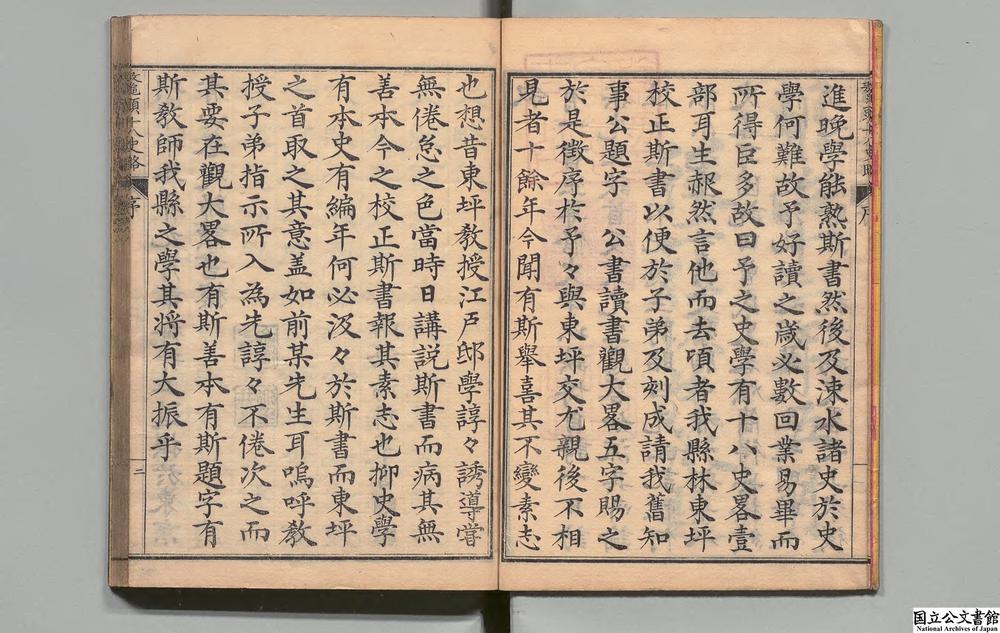 進晚學能熟斯書然後及涑水諸史於史
學何難故予好讀之歲必數回業易畢而
所得巨多故曰予之史學有十八史畧壹
部耳生赧然言他而去頃者我縣林東坪
校正斯書以便於子弟及刻成請我舊知
事公題字首公書讀書觀大畧五字賜之
於是徵序於予々與東坪交尤親後不相
見者十餘年今聞有斯舉喜其不變素志
也想昔東坪教授江戶邸學諄々誘導嘗
無倦怠之色當時日講説斯書而病其無
善本今之校正斯書報其素志也抑史學
有本史有編年何必汲々於斯書而東坪
之首取之其意盖如前某先生耳嗚呼教
授子弟指示所入為先諄々不倦次之而
其要在觀大畧也有斯善本有斯題字有
斯教師我縣之學其将有大振乎
序
二
国立公文書館
National Archives of Japan